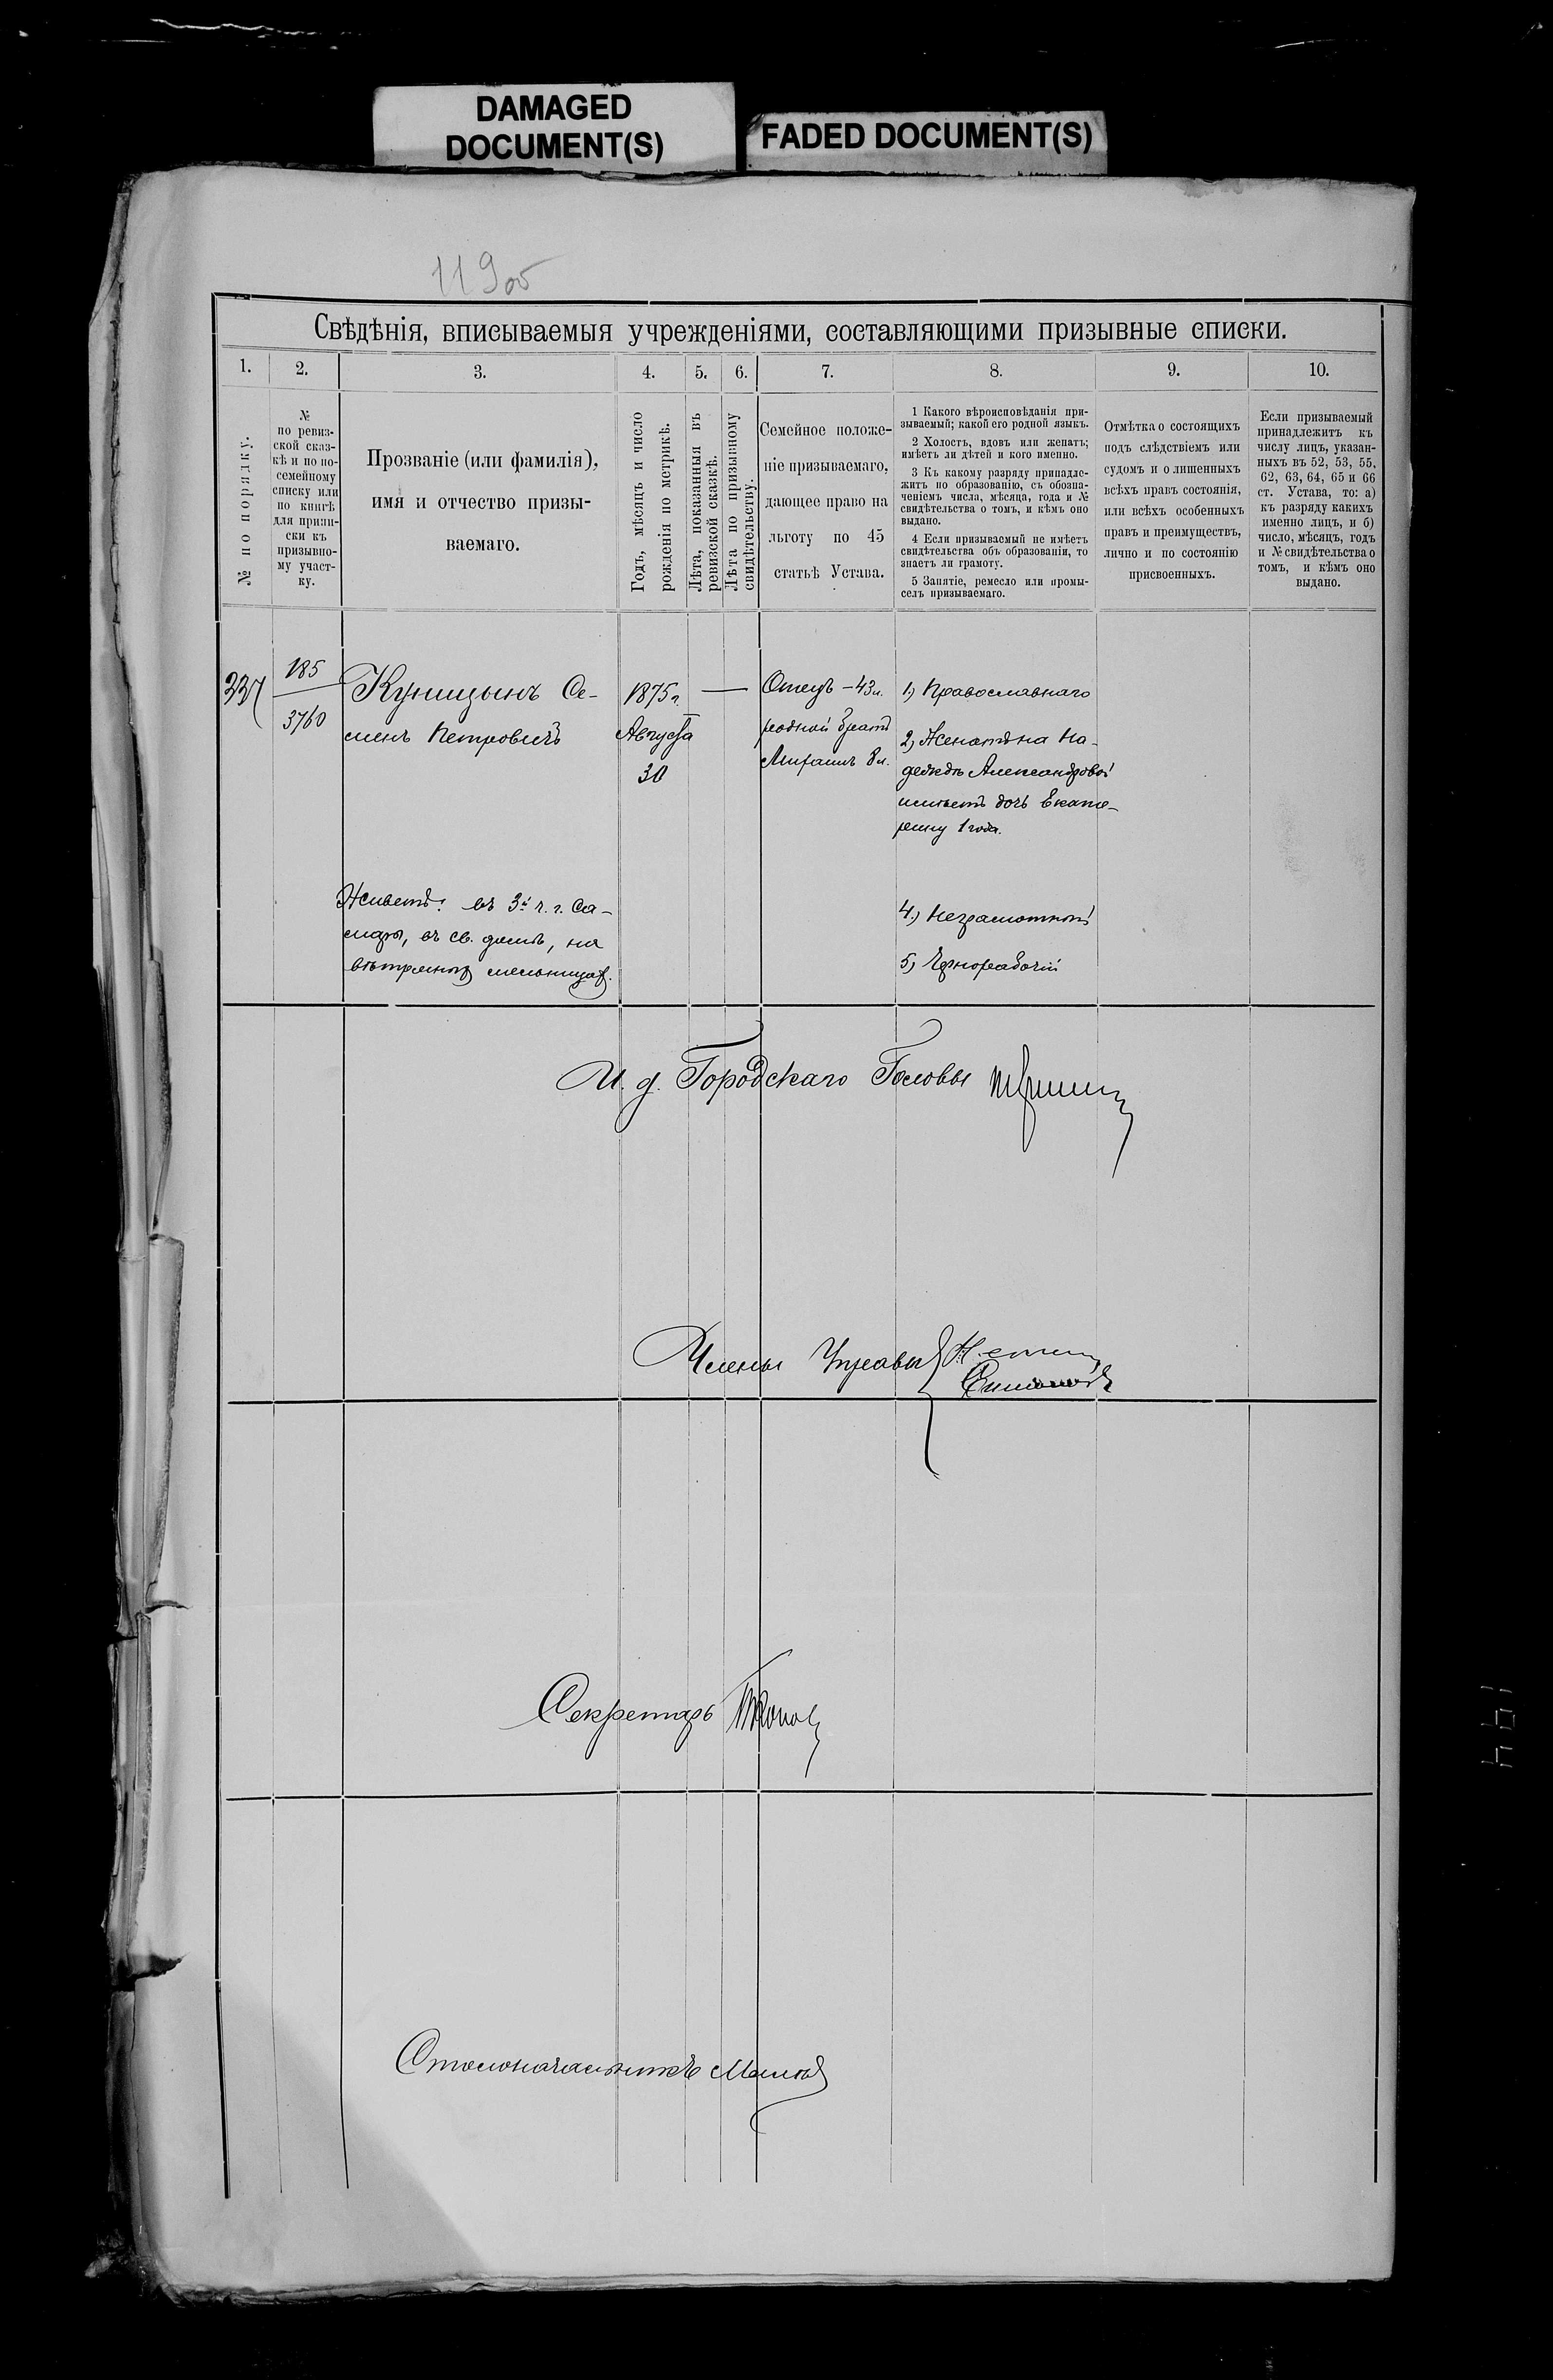 DAMAGED
DOCUMENT(S)
FADED DOCUMENT(S)
119об
Свѣдѣнія, вписываемыя учрежденіями, составляющими призывные списки.
1. 2. 3. 4. 5. 6. 7. 8. 9. 10.
№ по порядку.
№
по ревиз-
ской сказ-
кѣ и по по-
семейному
списку или
по книгѣ
для припи-
ски къ
призывно-
му участ-
ку.
Прозваніе (или фамилія),
имя и отчество призы-
ваемаго.
Годъ, мѣсяцъ и число
рожденія по метрикѣ.
Лѣта, показанныя въ
ревизской сказкѣ.
Лѣта по призывному
свидѣтельству.
Семейное положе-
ніе призываемаго,
дающее право на
льготу по 45
статьѣ Устава.
1 Какого вѣроисповѣданія при-
зываемый; какой его родной языкъ.
2 Холостъ, вдовъ или женатъ;
имѣетъ ли дѣтей и кого именно.
3 Къ какому разряду принадле-
житъ по образованію, съ обозна-
ченіемъ числа, мѣсяца, года и №
свидѣтельства о томъ, и кѣмъ оно
выдано.
4 Если призываемый не имѣетъ
свидѣтельства объ образованіи, то
знаетъ ли грамоту.
5 Занятіе, ремесло или промы-
селъ призываемаго.
Отмѣтка о состоящихъ
подъ слѣдствіемъ или
судомъ и о лишенныхъ
всѣхъ правъ состоянія,
или всѣхъ особенныхъ
правъ и преимуществъ,
лично и по состоянію
присвоенныхъ.
Если призываемый
принадлежитъ къ
числу лицъ, указан-
ныхъ въ 52, 53, 55,
62, 63, 64, 65 и 66
ст. Устава, то: а)
къ разряду какихъ
именно лицъ, и б)
число, мѣсяцъ, годъ
и № свидѣтельства о
томъ, и кѣмъ оно
выдано.
337
185
3760
Куницынъ Се-
менъ Петровичъ
Живетъ: въ 3й ч. г. Са-
мары, въ св. домѣ, на
вѣтреныхъ мельницах.
1875 г.
Августа
30
—
Отецъ – 43 л.
родной братъ
Митрофанъ 8 л.
1) Православнаго
2) Женатъ на На-
деждѣ Александровой
имѣетъ дочь Екате-
рину 1 года.
4) Неграмотный
5) Чернорабочій
И. д. Городскаго Головы
Члены Управы
Секретарь
Столоначальникъ
194